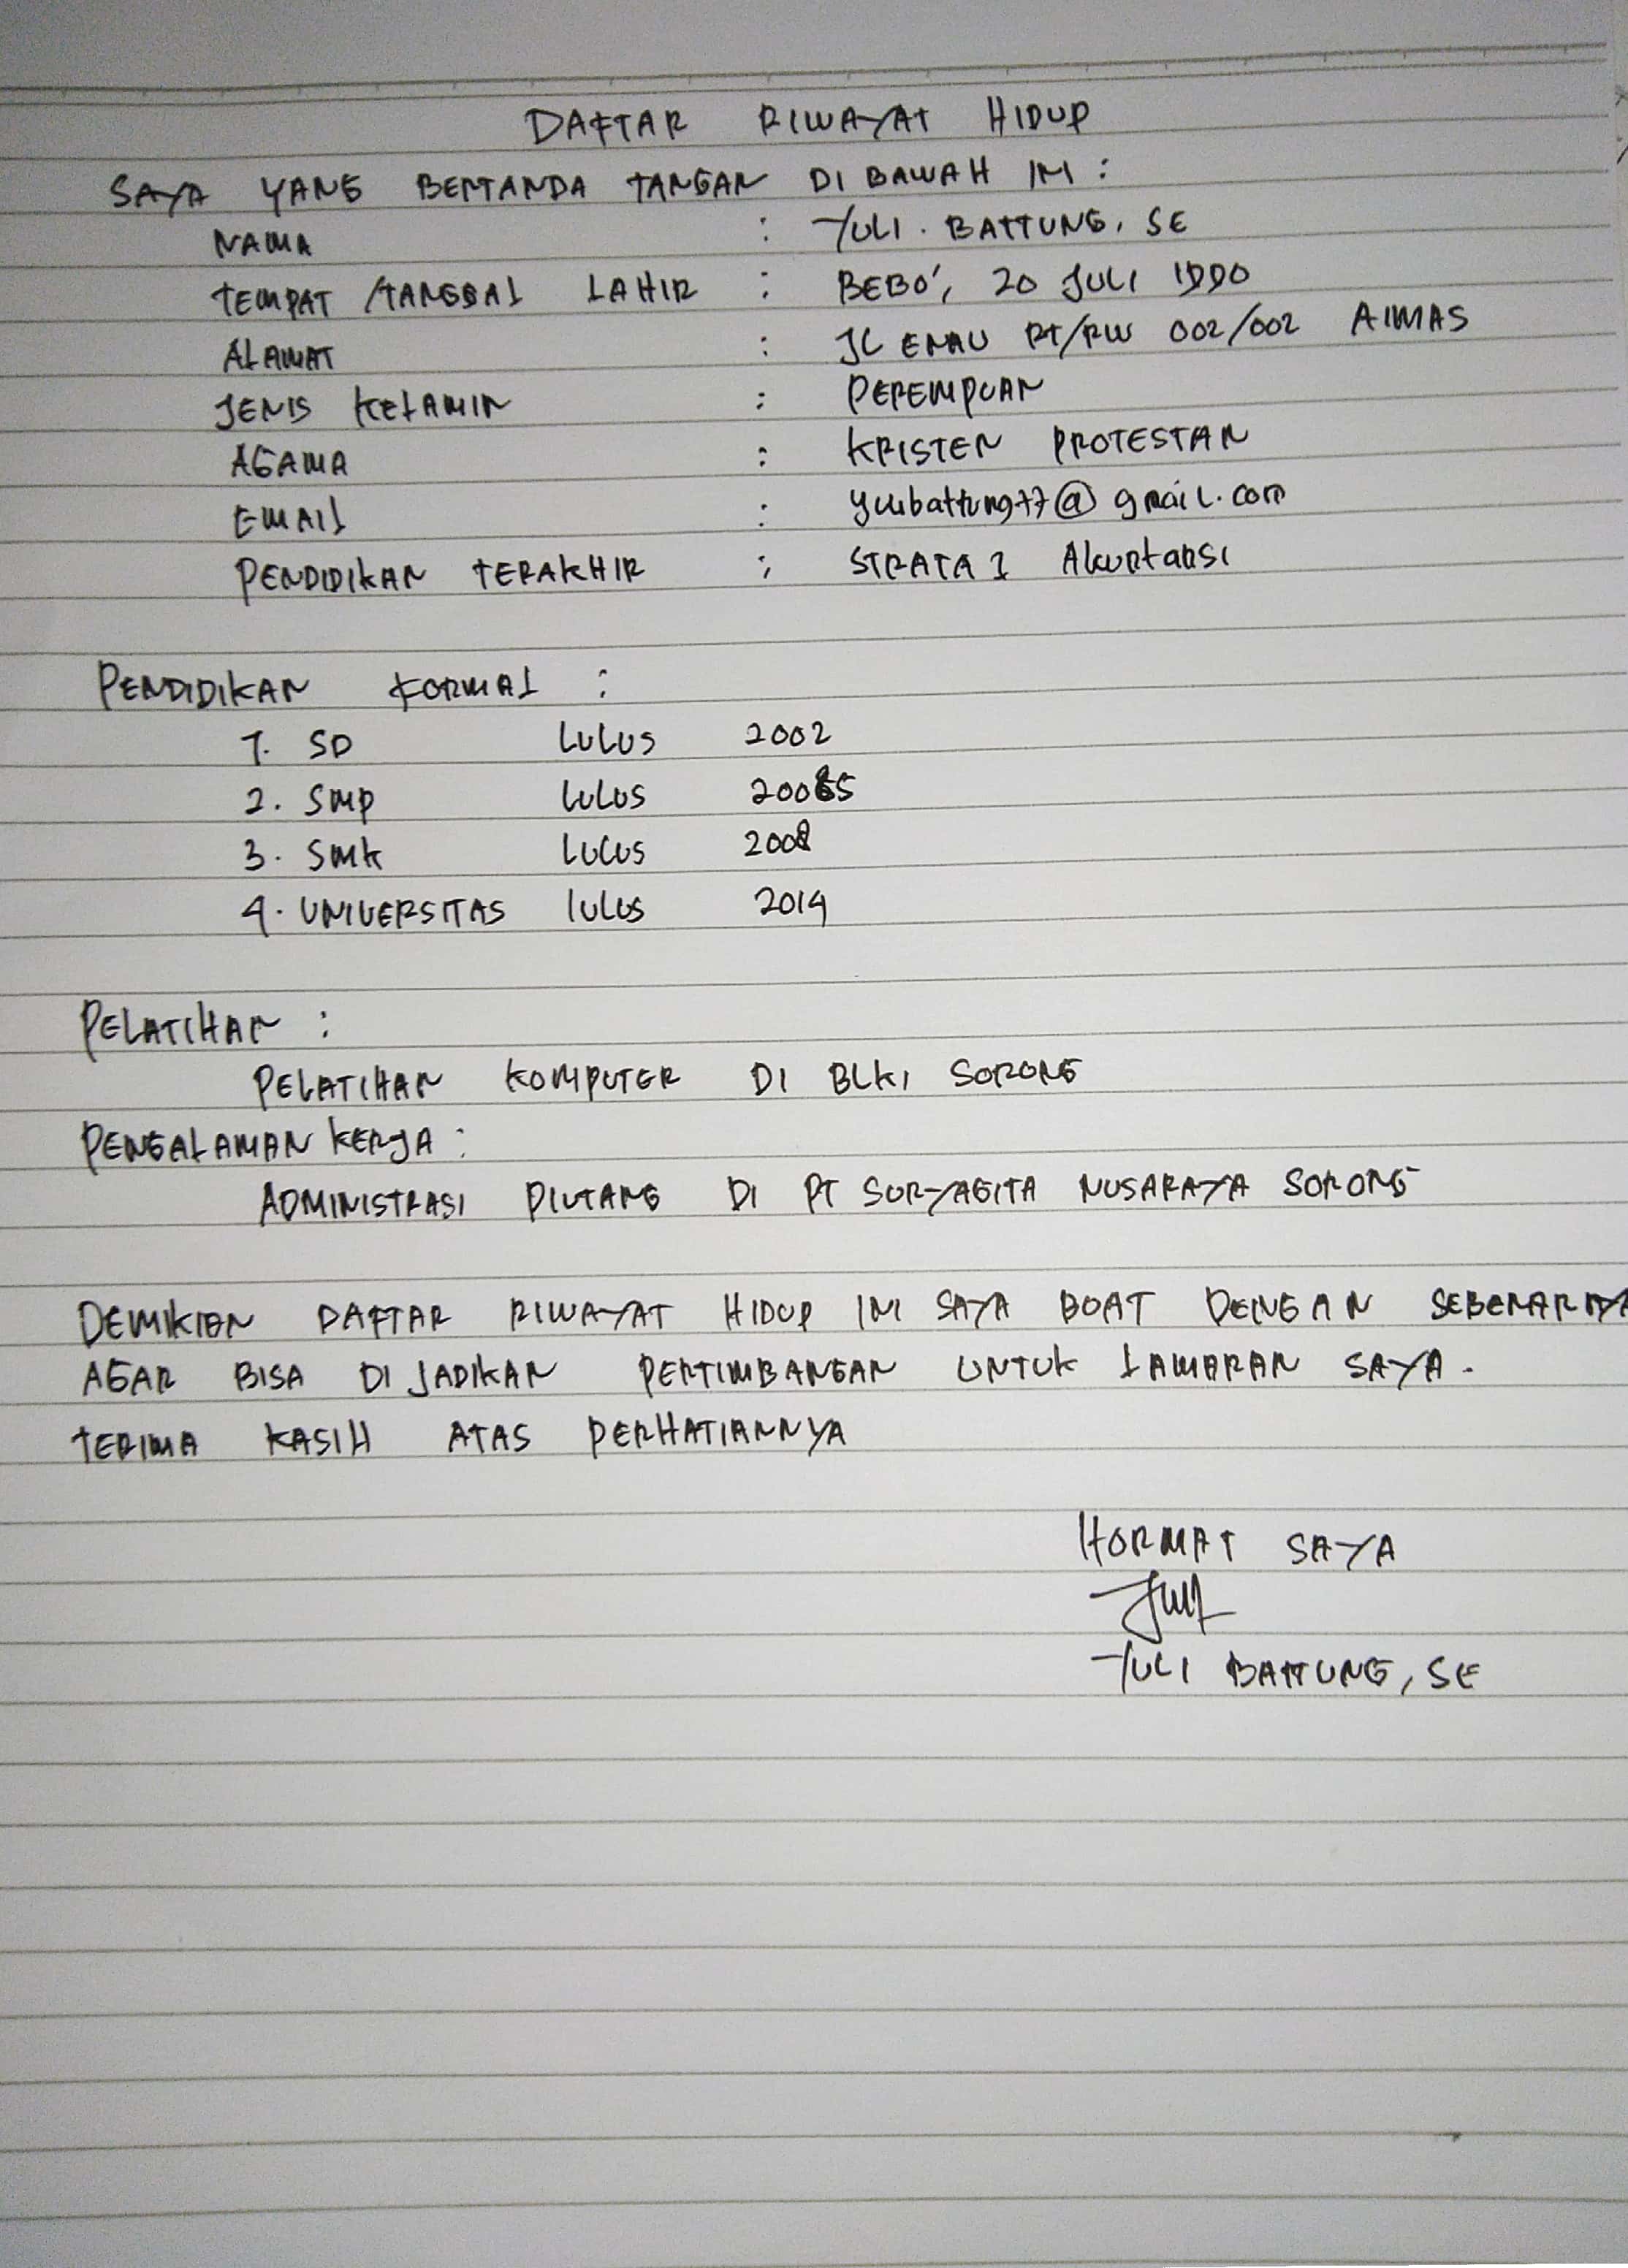 DAFTAR RIWAYAT HIDUP
SAYA YANG BERTANDA TANGAN DI BAWAH INI :
NAMA : YULI . BATTUNG, SE
TEMPAT /TANGGAL LAHIR : BEBO', 20 JULI 1990
ALAMAT : JL ENAU RT/RW 002/002 AIMAS
JENIS KELAMIN : PEREMPUAN
AGAMA : KRISTEN PROTESTAN
EMAIL : yulibattung77@gmail.com
PENDIDIKAN TERAKHIR : STRATA 1 Akuntansi
PENDIDIKAN FORMAL :
1. SD LULUS 2002
2. SMP LULUS 2005
3. SMK LULUS 2008
4. UNIVERSITAS lulus 2014
PELATIHAN :
PELATIHAN KOMPUTER DI BLKI SORONG
PENGALAMAN KERJA :
ADMINISTRASI PIUTANG DI PT SURYAGITA NUSARAYA SORONG
DEMIKIAN DAFTAR RIWAYAT HIDUP INI SAYA BUAT DENGAN SEBENARNYA
AGAR BISA DI JADIKAN PERTIMBANGAN UNTUK LAMARAN SAYA.
TERIMA KASIH ATAS PERHATIANNYA
HORMAT SAYA
YULI BATTUNG, SE